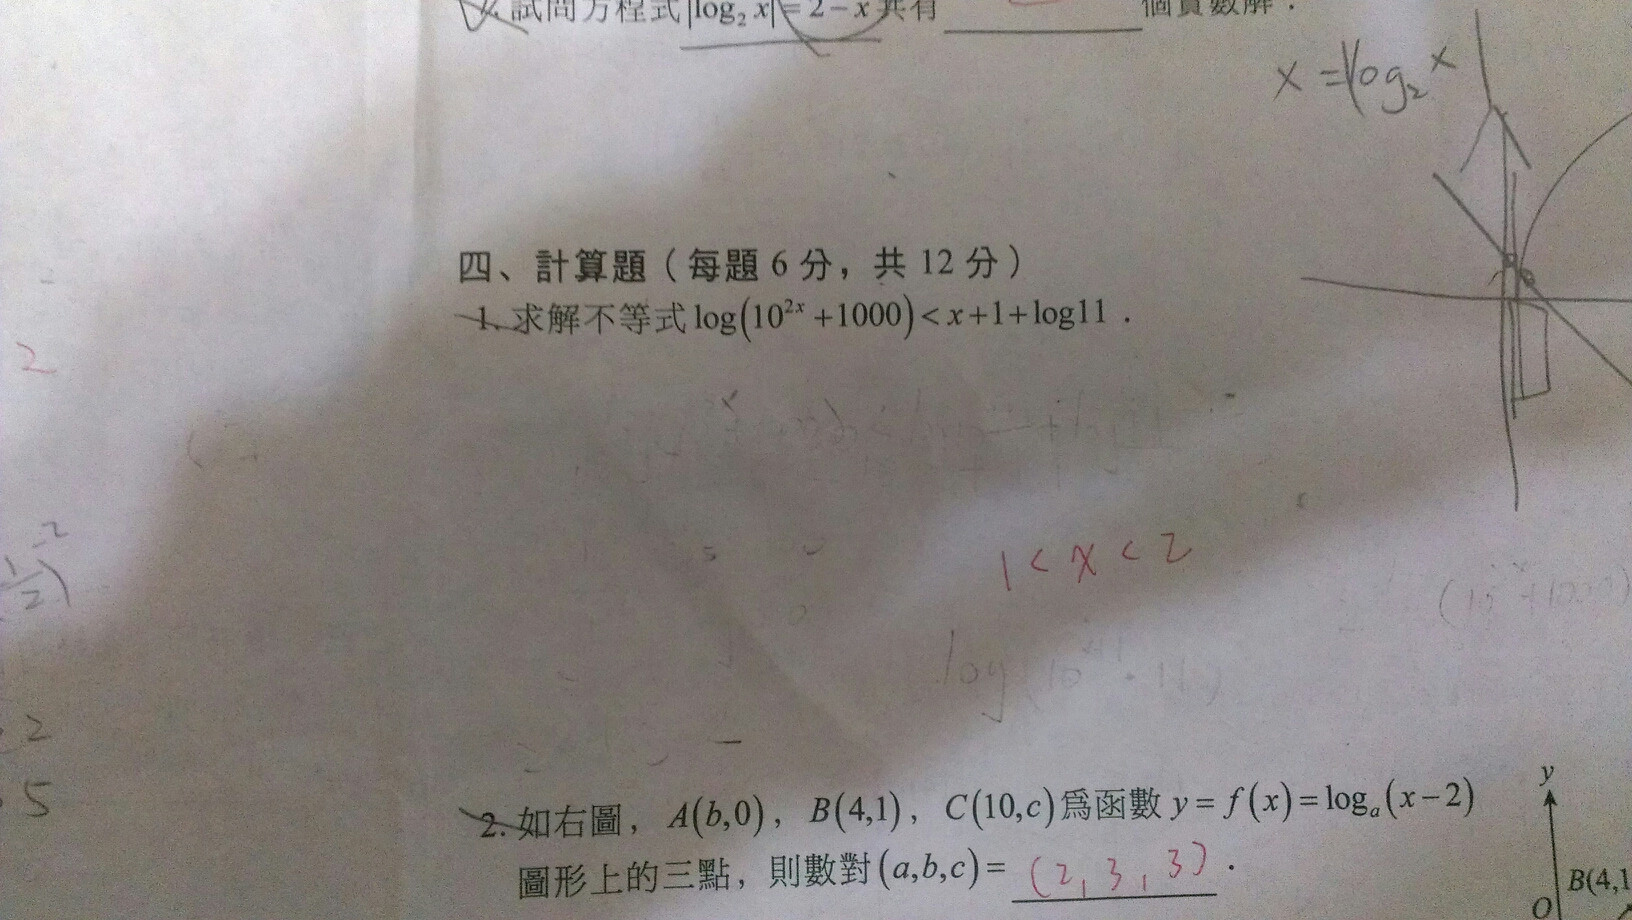 試問方程式|log₂ x| = 2 − x 共有 ______ 個實數解．
x = log₂ x
四、計算題（每題 6 分，共 12 分）
1. 求解不等式 log(10²ˣ +1000) < x+1+log11．
2
1 < x < 2
(10 +1000)
log(10ˣ⁺¹ · 11)
2
5
2. 如右圖，A(b,0)，B(4,1)，C(10,c)爲函數 y = f(x) = logₐ(x−2)
圖形上的三點，則數對(a,b,c) = (2, 3, 3)．
y
B(4,1
O